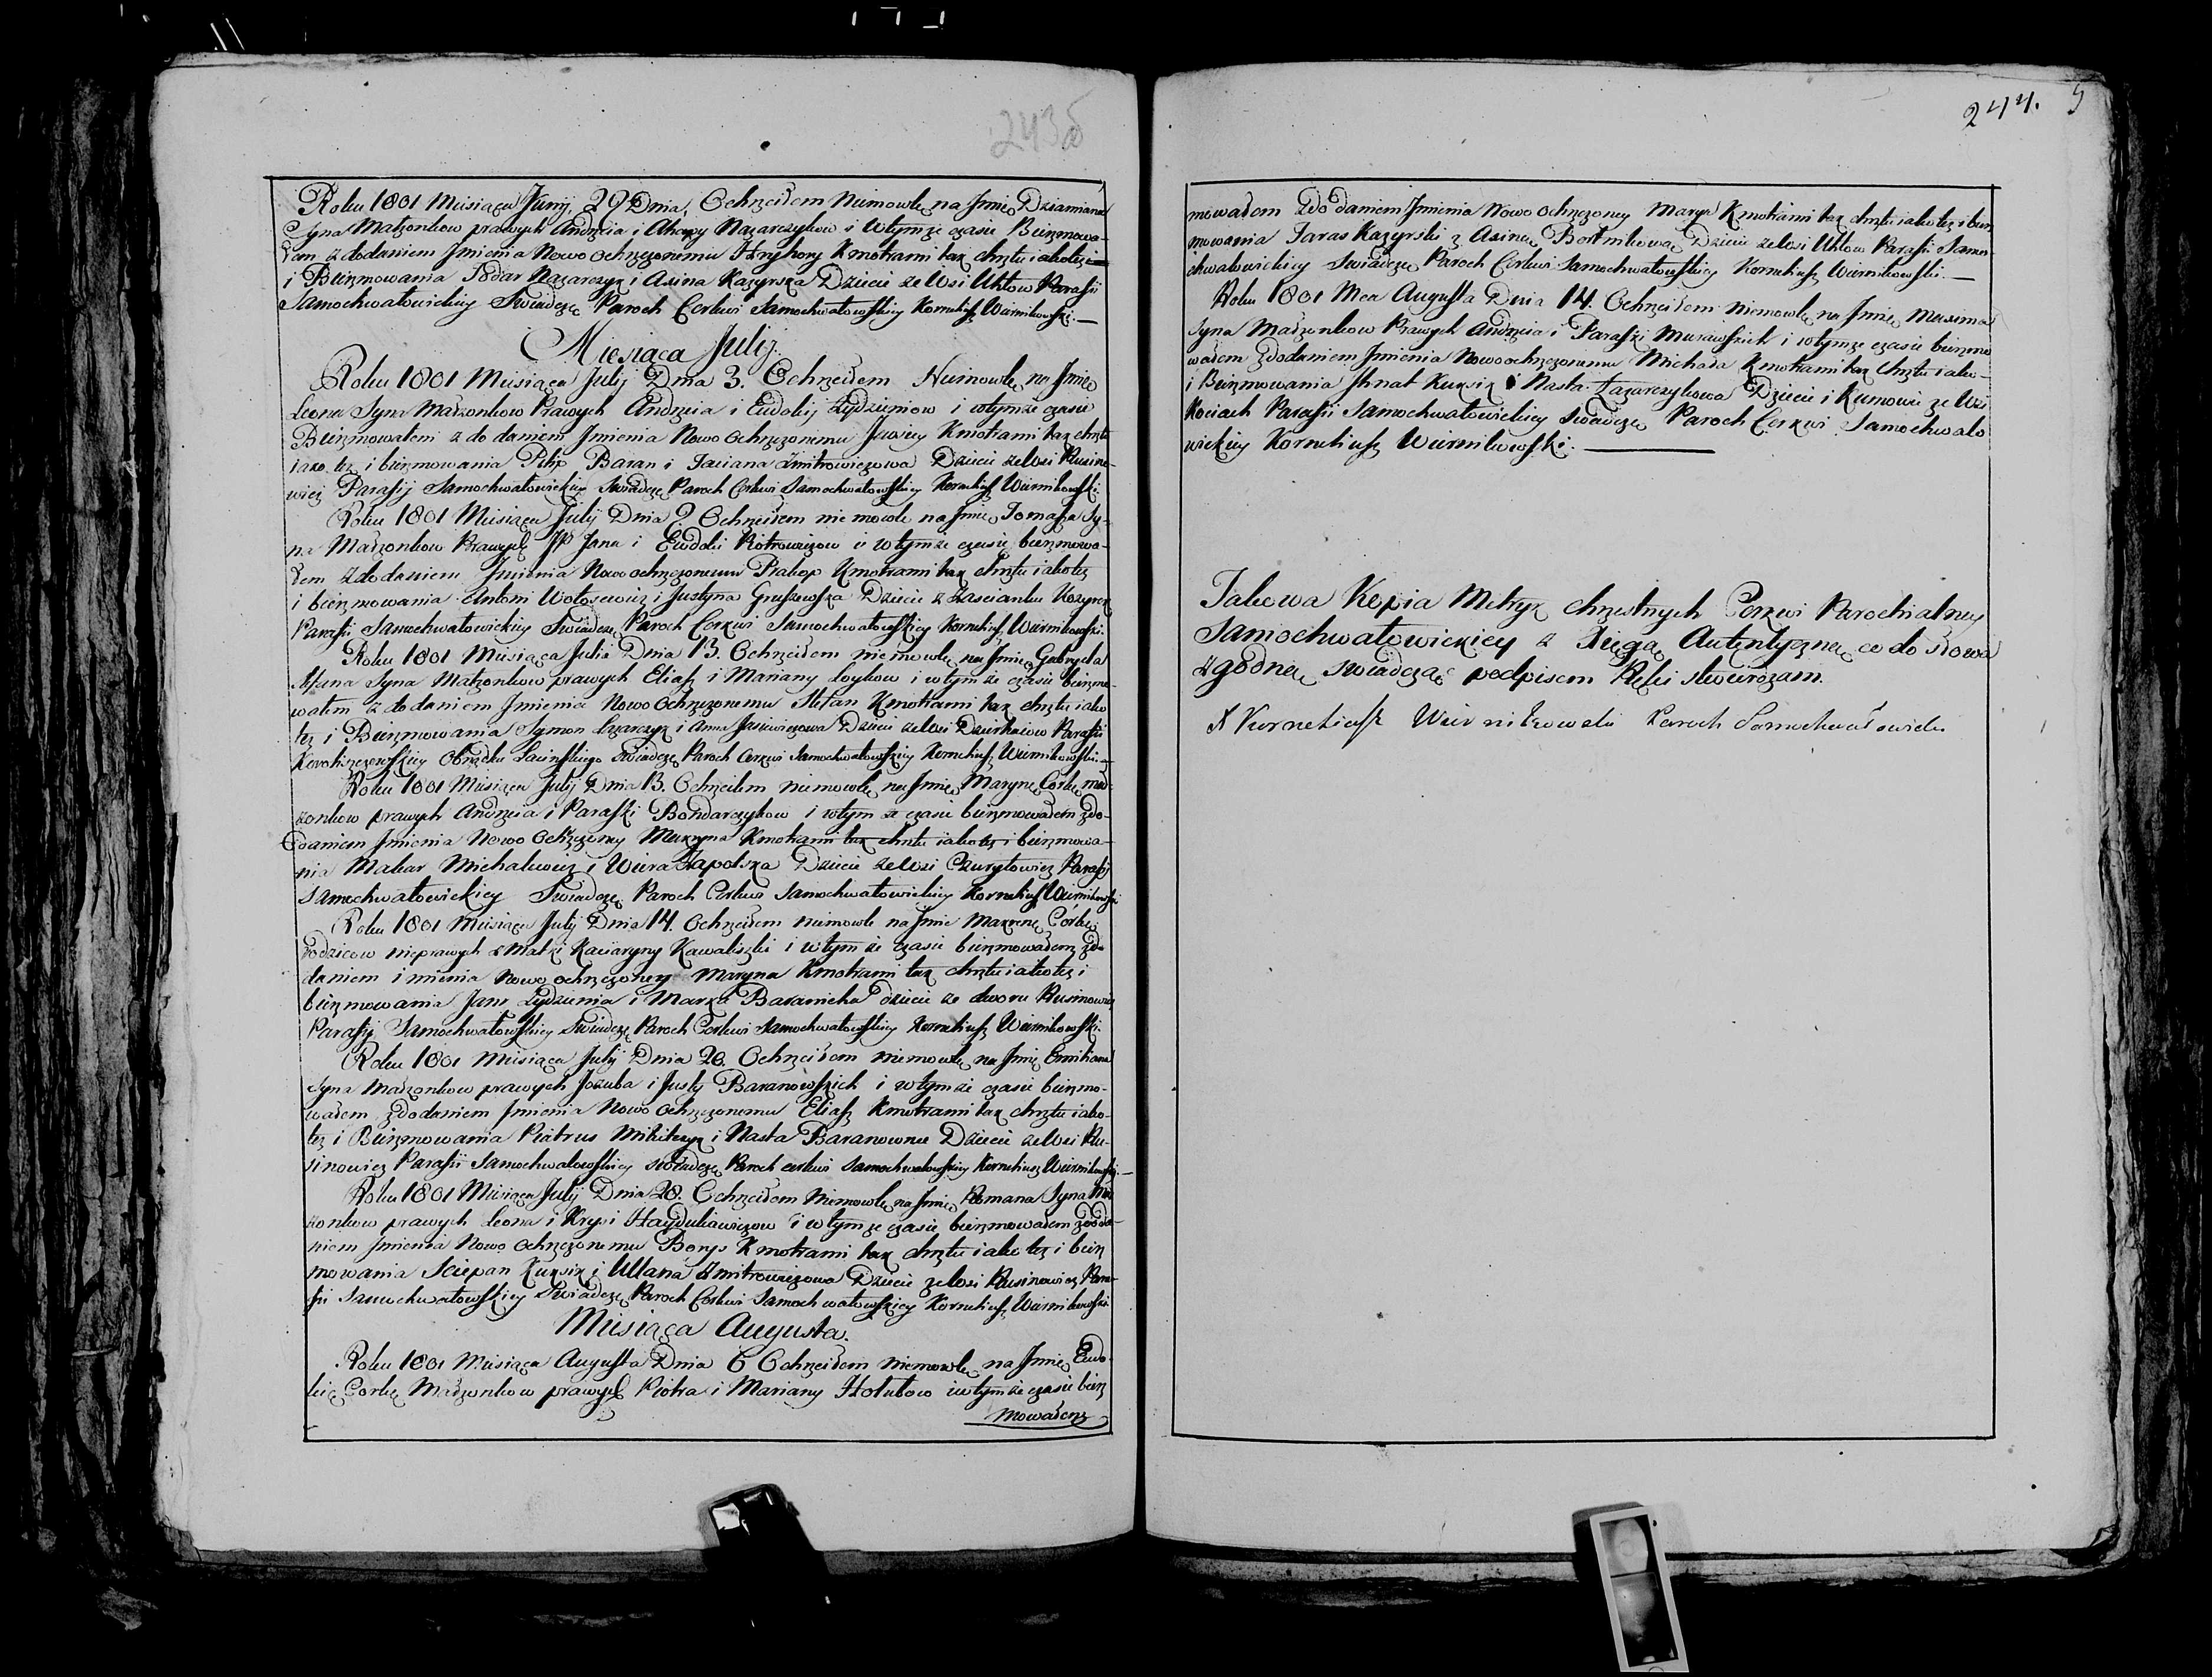 243б
Roku 1801 Miesiąca Junij. 29 Dnia, Ochrzciłem Niemowlę na Jmię Dziamiana
Syna Małżonkow prawych Andrzeia i Ahapy Nazarczykow i wtymże czasie Bierzmowa-
łem z dodaniem Jmienia Nowo ochrzczonemu Hryhory Kmotrami tak chrztu iako też
i Bierzmowania Todar Nazarczyk i Axinia Kazyrska Dziecie ze Wsi Uhłow Parafii
Samochwałowickiey Swiadczę Paroch Cerkwi Samochwałowskiey Korneliusz Wiernikowski.—
Miesiąca Julij.
Roku 1801 Miesiąca Julij Dnia 3. Ochrzciłem Niemowlę na Jmię
Leona Syna Małżonkow Prawych Andrzeia i Eudokij Łydzieniow i wtymże czasie
Bierzmowałem z do daniem Jmienia Nowo Ochrzczonemu Kmotrami tak chrztu
iako też i bierzmowania Pilip Baran i Taciana Zmitrowiczowa Dziecie ze Wsi Rusino-
wicz Parafij Samochwałowickiey Swiadczę Paroch Cerkwi Samochwałowskiey Korneliusz Wiernikowski.
Roku 1801 Miesiąca Julij Dnia 9. Ochrzciłem niemowle na Jmię Tomasza Sy-
na Małżonkow Prawych JP Jana i Ewdokii Piotrowiczow i wtymże czasie bierzmowa-
łem z dodaniem Jmienia Nowo ochrzczonemu Prakop Kmotrami tak chrztu iako też
i bierzmowania Antoni Wołosewicz i Justyna Gruszewska Dziecie z Zascianku Kozyrek
Parafii Samochwałowickiey Swiadczę Paroch Cerkwi Samochwałowskiey Korneliusz Wiernikowski.
Roku 1801 Miesiąca Julia Dnia 13. Ochrzciłem niemowlę na Jmię Gabryela
Syna Małżonkow prawych Eliasz i Mariany Łoykow i wtymże czasie bierzmo-
wałem z do daniem Jmienia Nowo Ochrzczonemu Stefan Kmotrami tak chrztu iako
też i Bierzmowania Symon Łazarczyk i Anna Jasiewiczowa Dziecie ze Wsi Parafii
Obrządku Łacinskiego Swiadczę Paroch Cerkwi Samochwałowskiey Korneliusz Wiernikowski.—
Roku 1801 Miesiąca Julij Dnia 13. Ochrzciłem niemowlę na Jmię Marynę Corkę mał-
żonkow prawych Andrzeia i Paraski Bondarczykow i wtymże czasie bierzmowałem zdo-
daniem Jmienia Nowo Ochrzczoney Maryna Kmotrami tak chrztu iako też i bierzmowa-
nia Makar Michalewicz i Wiera Zapolska Dziecie ze Wsi Czuryłowicz Parafij
Samochwałowickiey Swiadczę Paroch Cerkwi Samochwałowickiey Korneliusz Wiernikowski
Roku 1801 Miesiąca Julij Dnia 14. Ochrzciłem niemowle na Jmie Marynę Córkę
rodzicow nieprawych z Matki Kaciaryny Kawaliszki i wtymże czasie bierzmowałem zdo-
daniem imienia Nowo ochrzczoney Maryna Kmotrami tak chrztu iako też i
bierzmowania Jan Łydzienia i Marya Baranicha dziecie ze dworu Rusinowicz
Parafij Samochwałowskiey Swiadczę Paroch Cerkwi Samochwałowskiey Korneliusz Wiernikowski.
Roku 1801 Miesiąca Julij Dnia 20. Ochrzciłem niemowlę na Jmię Emiliana
Syna Małżonkow prawych Jozuba i Justy Baranowskich i wtymże czasie bierzmo-
wałem zdodaniem Jmienia Nowo Ochrzczonemu Eliasz Kmotrami tak chrztu iako-
też i Bierzmowania Piatrus Mikiteyk i Nasta Baranowna Dziecie ze Wsi Ru-
sinowicz Parafii Samochwałowskiey swiadczę Paroch cerkwi Samochwałowskiey Korneliusz Wiernikowski.—
Roku 1801 Miesiąca Julij Dnia 28. Ochrzciłem Niemowlę na Jmię Romana Syna Mał-
żonkow prawych Leona i Krysi Haydukiewiczow i wtymże czasie bierzmowałem zdoda-
niem Jmienia Nowo Ochrzczonemu Borys Kmotrami tak chrztu iako też i bierz
mowania Sciepan Kuksik i Ullana Zmitrowiczowa Dziecie ze Wsi Rusinowicz Para-
fii Samochwałowskiey Swiadczę Paroch Cerkwi Samochwałowskiey Korneliusz Wiernikowski.
Miesiąca Augusta.
Roku 1801 Miesiąca Augusta Dnia 6 Ochrzciłem niemowlę na Jmię Eudo-
kię Corkę Małżonkow prawych Piotra i Mariany Hołubow iwtymże czasie bierz
mowałem
244. 5
mowałem zdo daniem Jmienia Nowo Ochrzczoney Marya Kmotrami tak chrztu iako też i bierz
mowania Taras Kazyrski z Axinią Bortnikową Dziecie ze Wsi Uhłow Parafii Samo-
chwałowickiey Swiadczę Paroch Cerkwi Samochwałowskiey Korneliusz Wiernikowski.—
Roku 1801 Mca Augusta Dnia 14. Ochrzciłem niemowlę na Jmię Maxima
Syna Małżonkow Prawych Andrzeia i Paraszki Murawskich i wtymże czasie bierzmo
wałem zdodaniem Jmienia Nowoochrzczonemu Michała Kmotrami tak Chrztu iako-
i Bierzmowania Jhnat Kuksik i Nasta Łazarczykowa Dziecie i Kumowie ze Wsi
Kociach Parafii Samochwałowickiey Swiadczę Paroch Cerkwi Samochwało
wickiey Korneliusz Wiernikowski.
Takowa Kopia Metryk chrzestnych Cerkwi Parochialney
Samochwałowickiey z Xięgą Autentyczną co do słowa
zgodną swiadcząc podpisem Ręki stwierdzam.
X Korneliusz Wiernikowski Paroch Samochwałowicki